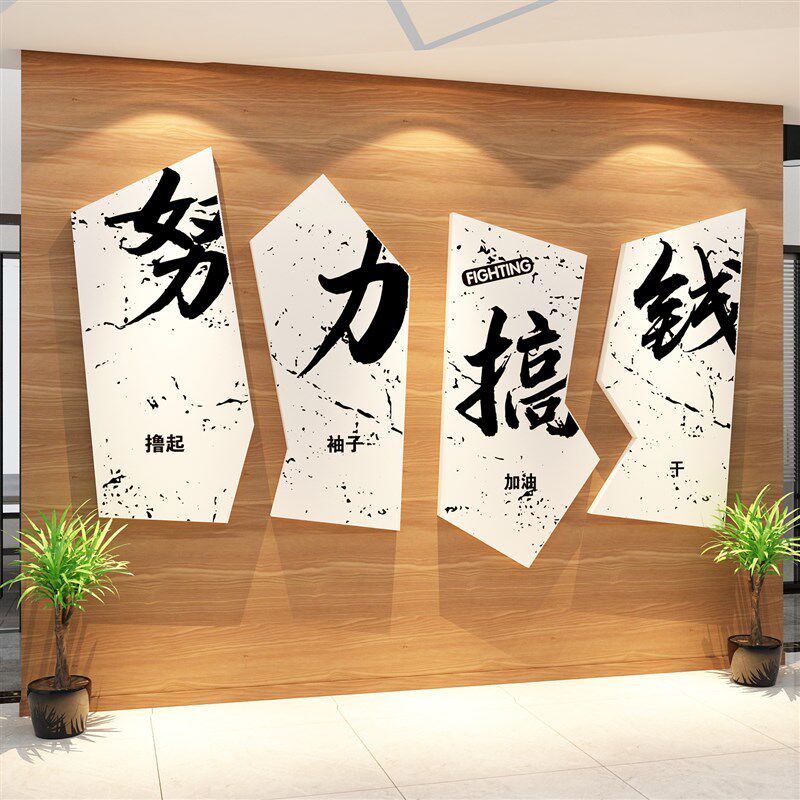 努力搞钱
FIGHTING
撸起
袖子
加油
干